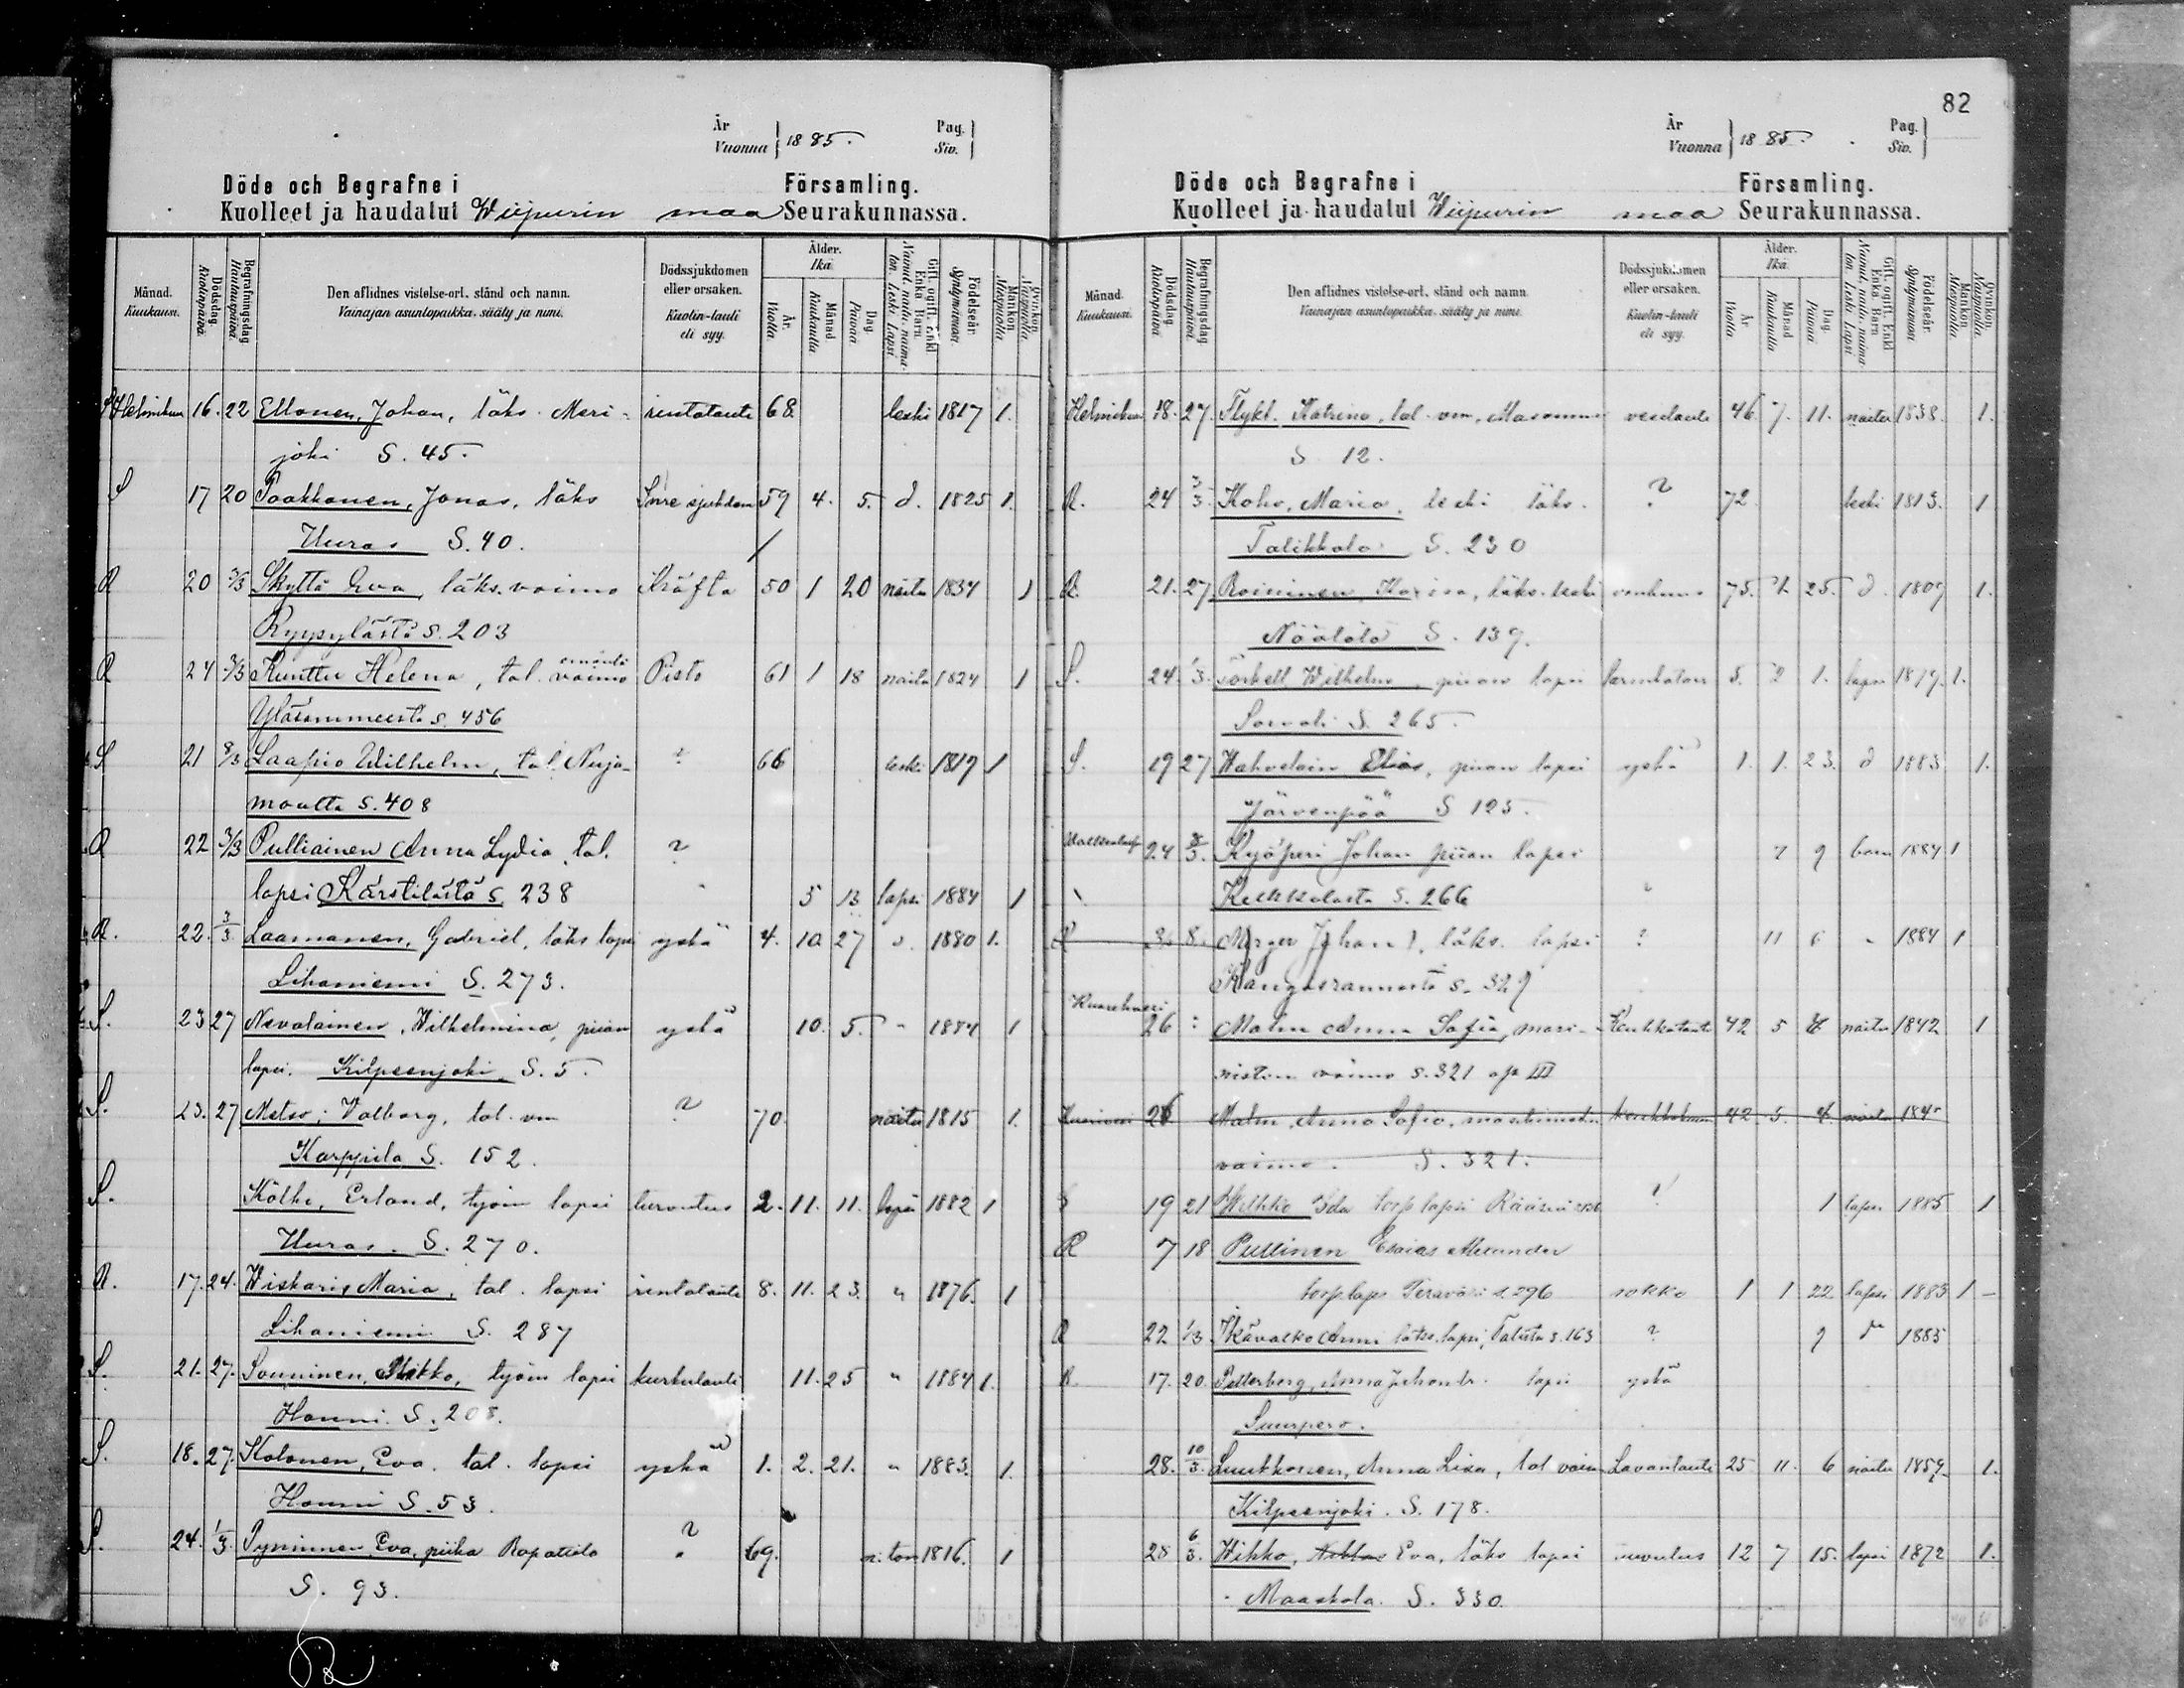 82
År
Vuonna } 1885.
Pag.
Siv. }
Döde och Begrafne i Församling.
Kuolleet ja haudatut Wiipurin maa Seurakunnassa.
Månad. Kuukausi.
Dödsdag. Kuolinpäivä.
Begrafningsdag Hautauspäivä
Den aflidnes vistelse-ort, stånd och namn.
Vainajan asuntopaikka, sääty ja nimi.
Dödssjukdomen eller orsaken.
Kuolin-tauti eli syy.
Ålder. Ikä.
År. Vuotta
Månad Kuukautta
Dag. Päivää
Gift, ogift, Enkl. Enka Barn.
Födelseår. Syntymävuosi.
Mankön. Miespuolia
Qvinkön. Naispuolia
Helmikuu 16. 22 Ellonen, Johan, läks. Meri- rintatauti 68. leski 1817 1.
joki S. 45.
S 17 20 Paakkanen, Jonas, läks 59 4. 5. d. 1825 1.
Uuras S. 40.
R 20 3/3 Skyttä Eva, läks. vaimo Kräfta 50 1 20 naitu 1834 1
S. 203
R 24 3/3 Kunttu Helena, tal. emäntä vaimo Pisto 61 1 18 naitu 1824 1
Yläsommeesta s. 456
S 21 8/3 Laapio Wilhelm, tal. Nuija- ? 66 leski 1819 1
maalta S. 408
R 22 3/3 Pulliainen Anna Lydia, tal. ?
lapsi Kärstilästä s. 238 5 13 lapsi 1884 1
R. 22. 3/3 Laamanen, Gabriel, läks lapsi yskä 4. 10 27 1880 1.
Lihaniemi S. 273.
S. 23 27 Nevalainen, Wilhelmina, piian yskä 10. 5. " 1884 1
lapsi. Kilpeenjoki S. 5.
S. 23. 27 Metso, Valborg, tal. vm ? 70. naitu 1815 1.
Karppila S. 152.
S. Kölhi, Erland, työm lapsi turvotus 2. 11. 11. lapsi 1882 1
Uuras. S. 270.
R. 17. 24. Wiskari, Maria, tal. lapsi rintatauti 8. 11. 23. " 1876. 1
Lihaniemi S. 287
S. 21. 27. Souninen, Mikko, työm lapsi kurkutauti 11. 25 " 1884 1.
Honni S. 208.
S. 18. 27. Kolonen, Eva. tal. lapsi yskä 1. 2. 21. " 1883. 1.
Honni S. 53.
S. 24. 1/3 Pyninnen, Eva, piika Rapattila ? 69. n. ton 1816. 1
S. 93.
R
År
Vuonna } 1885.
Pag.
Siv. }
Döde och Begrafne i Församling.
Kuolleet ja haudatut Wiipurin maa Seurakunnassa.
Månad. Kuukausi.
Dödsdag. Kuolinpäivä
Begrafningsdag Hautauspäivä
Den aflidnes vistelse-ort, stånd och namn.
Vainajan asuntopaikka, sääty ja nimi.
Dödssjukdomen eller orsaken.
Kuolin-tauti eli syy.
Ålder. Ikä.
År Vuotta
Månad Kuukautta
Dag. Päivää
Gift, ogift, Enkl. Enka Barn
Födelseår. Syntymävuosi
Mankön. Miespuolia
Qvinkön. Naispuolia
Helmikuu 18. 27. Flykt. Katrina, tal. vm, vesitauti 46. 7. 11. naitu 1838. 1.
S 12.
R. 24 3/3. Koho, Maria, leski läks. ? 72. leski 1813. 1
Talikkala S. 230
R. 21. 27 Roininen, läks. leski vanhuus 75. 25. d. 1809 1.
Näätälä S. 139.
S. 24. 1/3. Törkell Wilhelm, piian lapsi 5. 2 1. lapsi 1879. 1.
Sorvali S. 265.
S. 19 27 Wahvelain Elias, piian lapsi yskä 1. 1. 23. d 1883 1.
Järvenpää S 125.
24 8/3. Kyöperi Johan piian lapsi 7 9 barn 1884 1
S. 266 ?
R 8. Johan, läks. lapsi ? 11 6 " 1884 1
Kangasrannasta s. 329
26 Malm Anna Sofia, masi- Keuhkotauti 42 5 4 naitu 1842 1
nistin vaimo s. 321 op III
26 Malm, Anna Sofia, 42. 5. 4. naitu
vaimo. S. 321.
S 19 21 Ida torp lapsi 1 lapsi 1885 1
R 7 18 Pullinen Esaias Alexander
torp. laps s. 296 rokko 1 1 22 lapsi 1883 1 -
R 22 1/3 Skävalko Anna läks. lapsi, Talista s. 163 ? 9 1885
R. 17. 20. Petterberg, Anna lapsi yskä
Suurpero.
28. 10/3. Luukkonen, Anna Lisa, tal vaim Lavantauti 25 11. 6 naitu 1859. 1.
Kilpeenjoki. S. 178.
28 6/3. Wikko, Eva, läks lapsi 12 7 15. lapsi 1872 1.
Maaskola. S. 330.